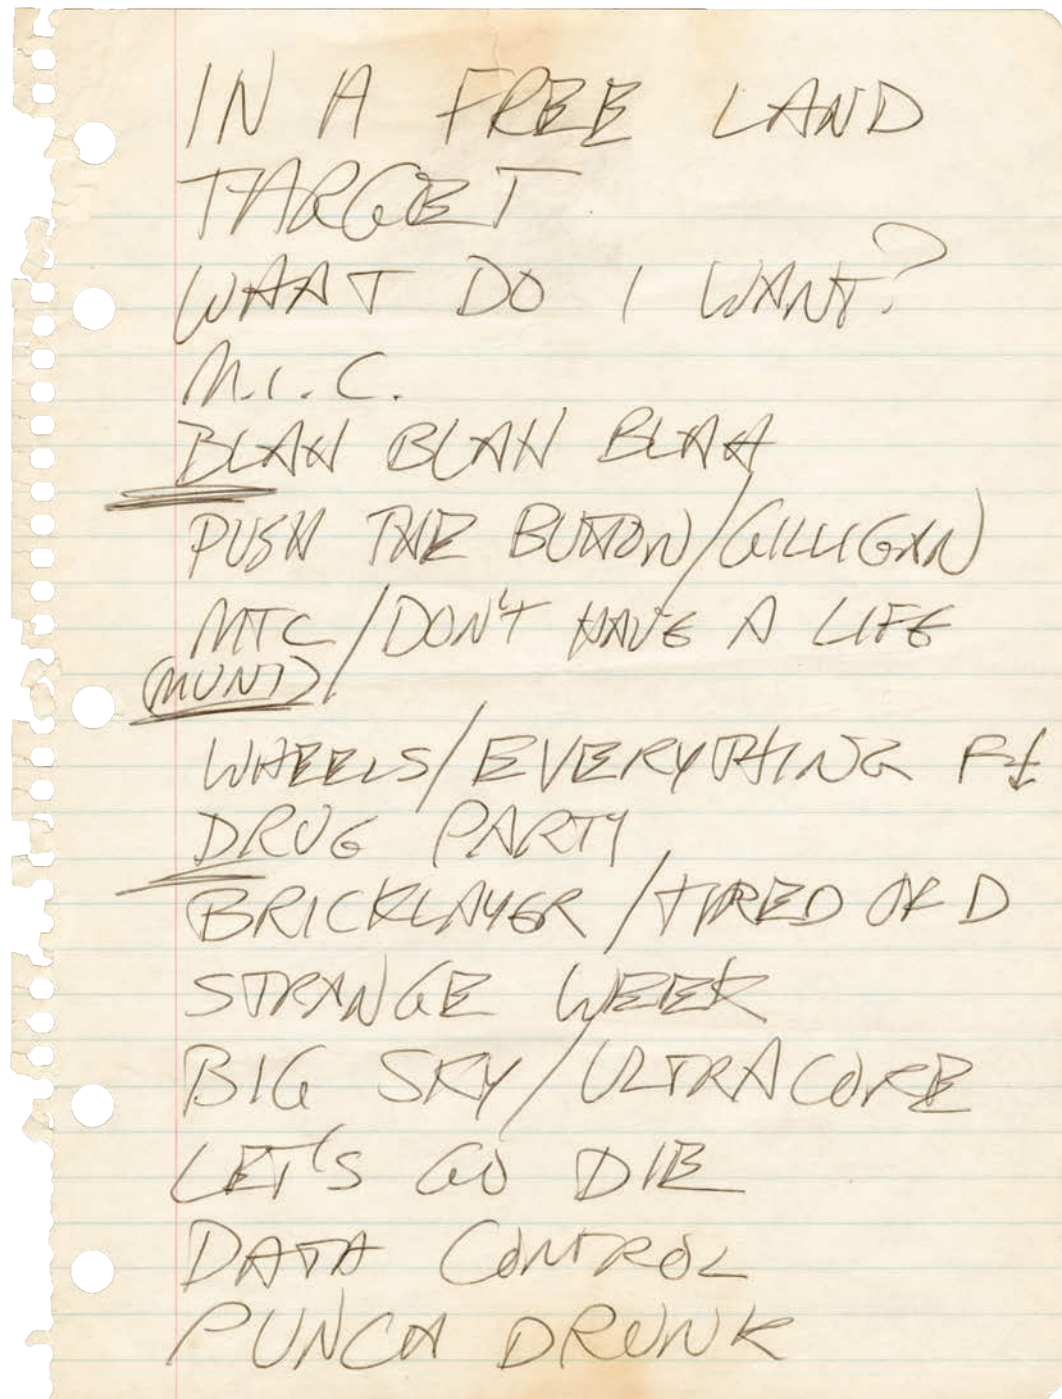 IN A FREE LAND
TARGET
WHAT DO I WANT?
M.I.C.
BLAH BLAH BLAH
PUSH THE BUTTON/GILLIGAN
MTC/DON'T HAVE A LIFE
(MUNT)
WHEELS/EVERYTHING F↓
DRUG PARTY
BRICKLAYER/TIRED OF D
STRANGE WEEK
BIG SKY/ULTRACORE
LET'S GO DIE
DATA CONTROL
PUNCH DRUNK